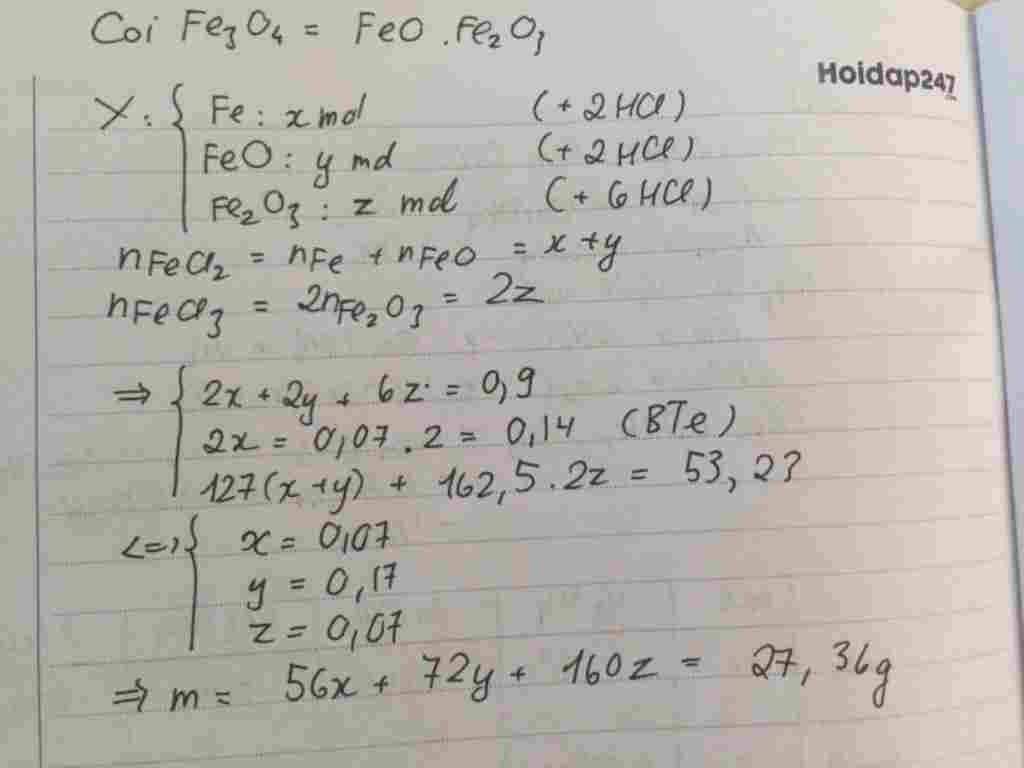 Coi Fe₃O₄ = FeO . Fe₂O₃
Hoidap247
X : { Fe : x mol (+ 2HCl)
FeO : y mol (+ 2HCl)
Fe₂O₃ : z mol (+ 6HCl)
nFeCl₂ = nFe + nFeO = x + y
nFeCl₃ = 2nFe₂O₃ = 2z
⇒ { 2x + 2y + 6z = 0,9
2x = 0,07 . 2 = 0,14 (BTe)
127(x + y) + 162,5 . 2z = 53,23
<=> { x = 0,07
y = 0,17
z = 0,07
⇒ m = 56x + 72y + 160z = 27,36g